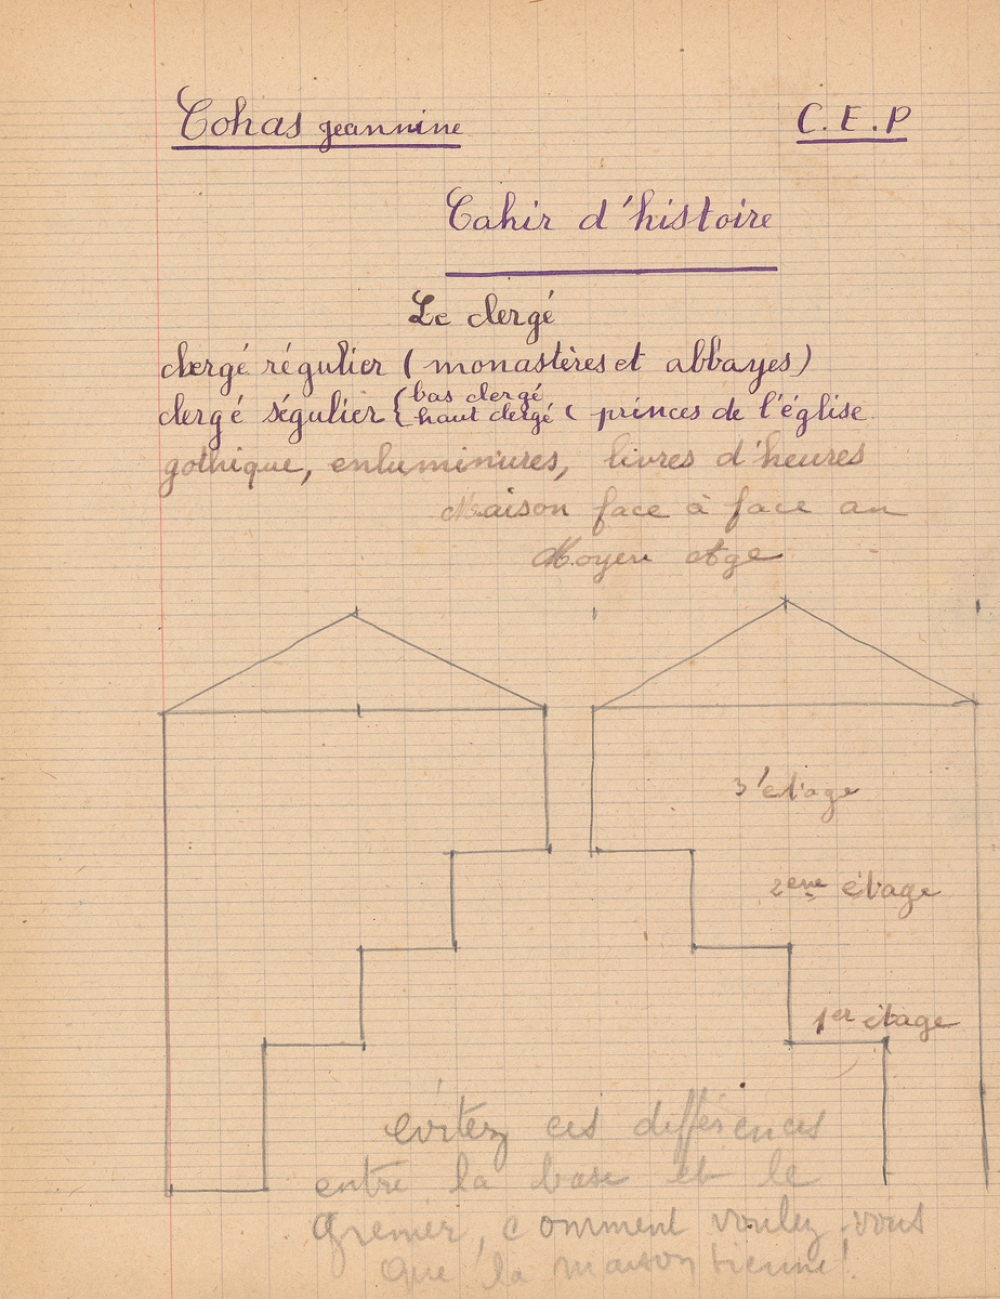 Cohas jeannine
C.E.P
Cahir d'histoire
Le clergé
clergé régulier (monastères et abbayes)
clergé ségulier { bas clergé
haut clergé ( princes de l'église
gothique, enluminures, livres d'heures
Maison face à face au
Moyen Age
3' étage
2ème étage
1er étage
évitez ces différences
entre la base et le
grenier, comment voulez-vous
que la maison tienne!